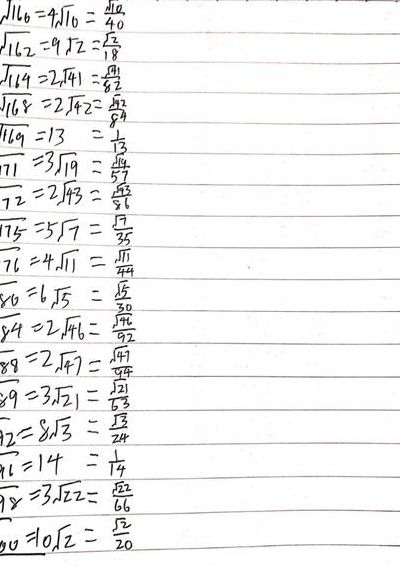 √160=4√10=√10/40
√162=9√2=√2/18
√164=2√41=√41/82
√168=2√42=√42/84
√169=13=1/13
171=3√19=√19/57
172=2√43=√43/86
175=5√7=√7/35
76=4√11=√11/44
80=6√5=√5/30
84=2√46=√46/92
88=2√47=√47/94
89=3√21=√21/63
92=8√3=√3/24
96=14=1/14
98=3√22=√22/66
00=10√2=√2/20